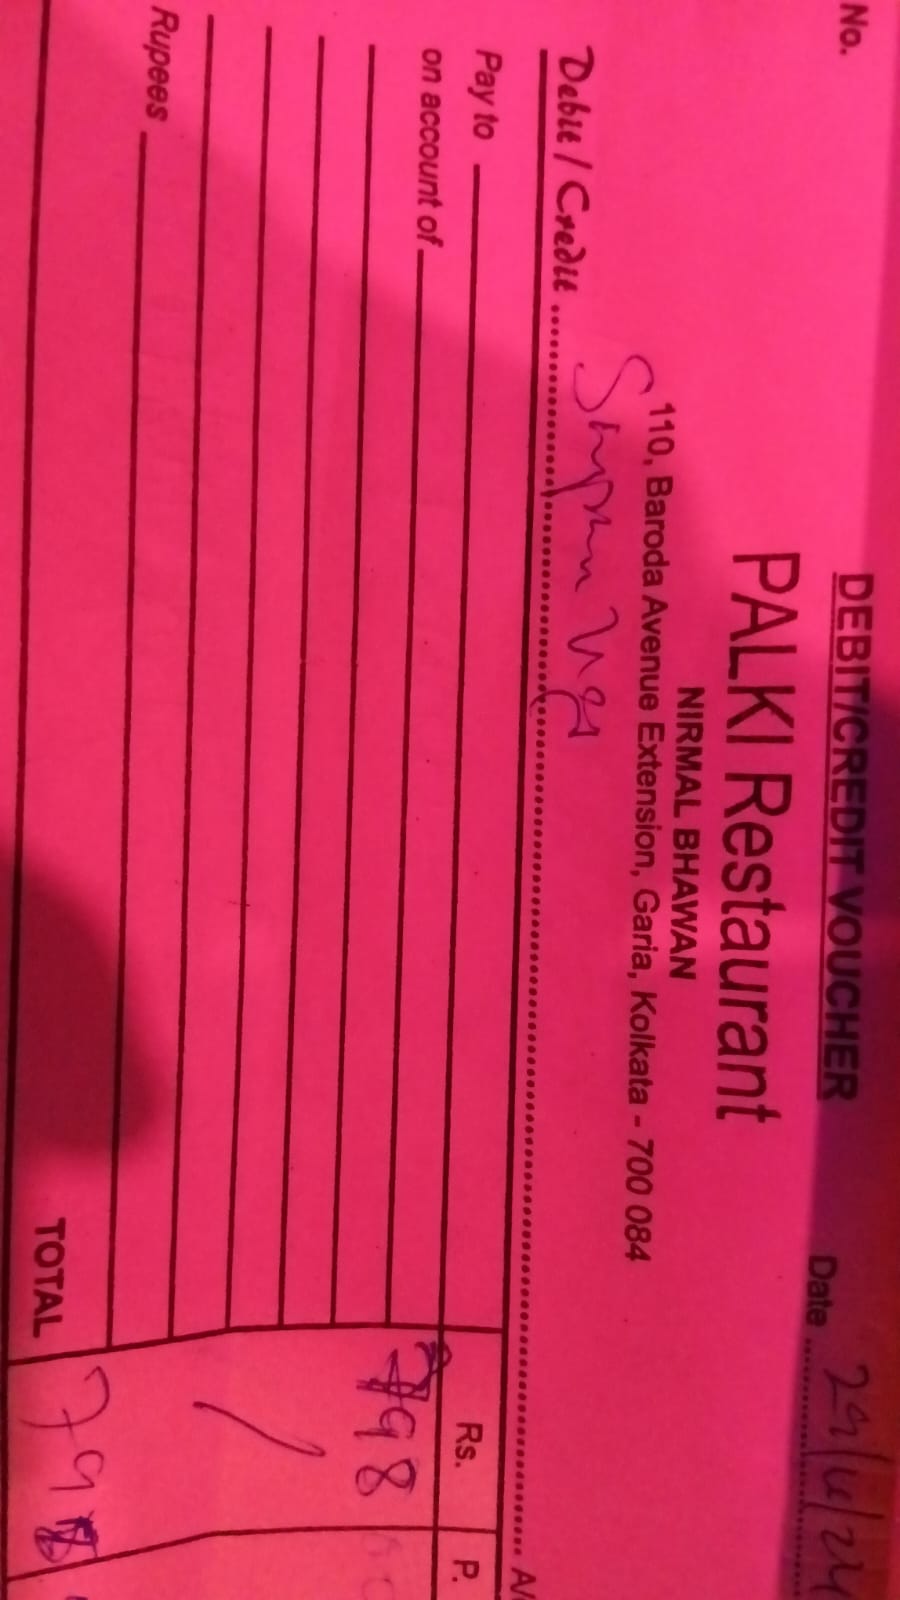 No.
DEBIT/CREDIT VOUCHER
Date 29/10/24
PALKI Restaurant
NIRMAL BHAWAN
110, Baroda Avenue Extension, Garia, Kolkata - 700 084
Debit / Credit
Rs. P.
Pay to
on account of
798
Rupees
TOTAL 798